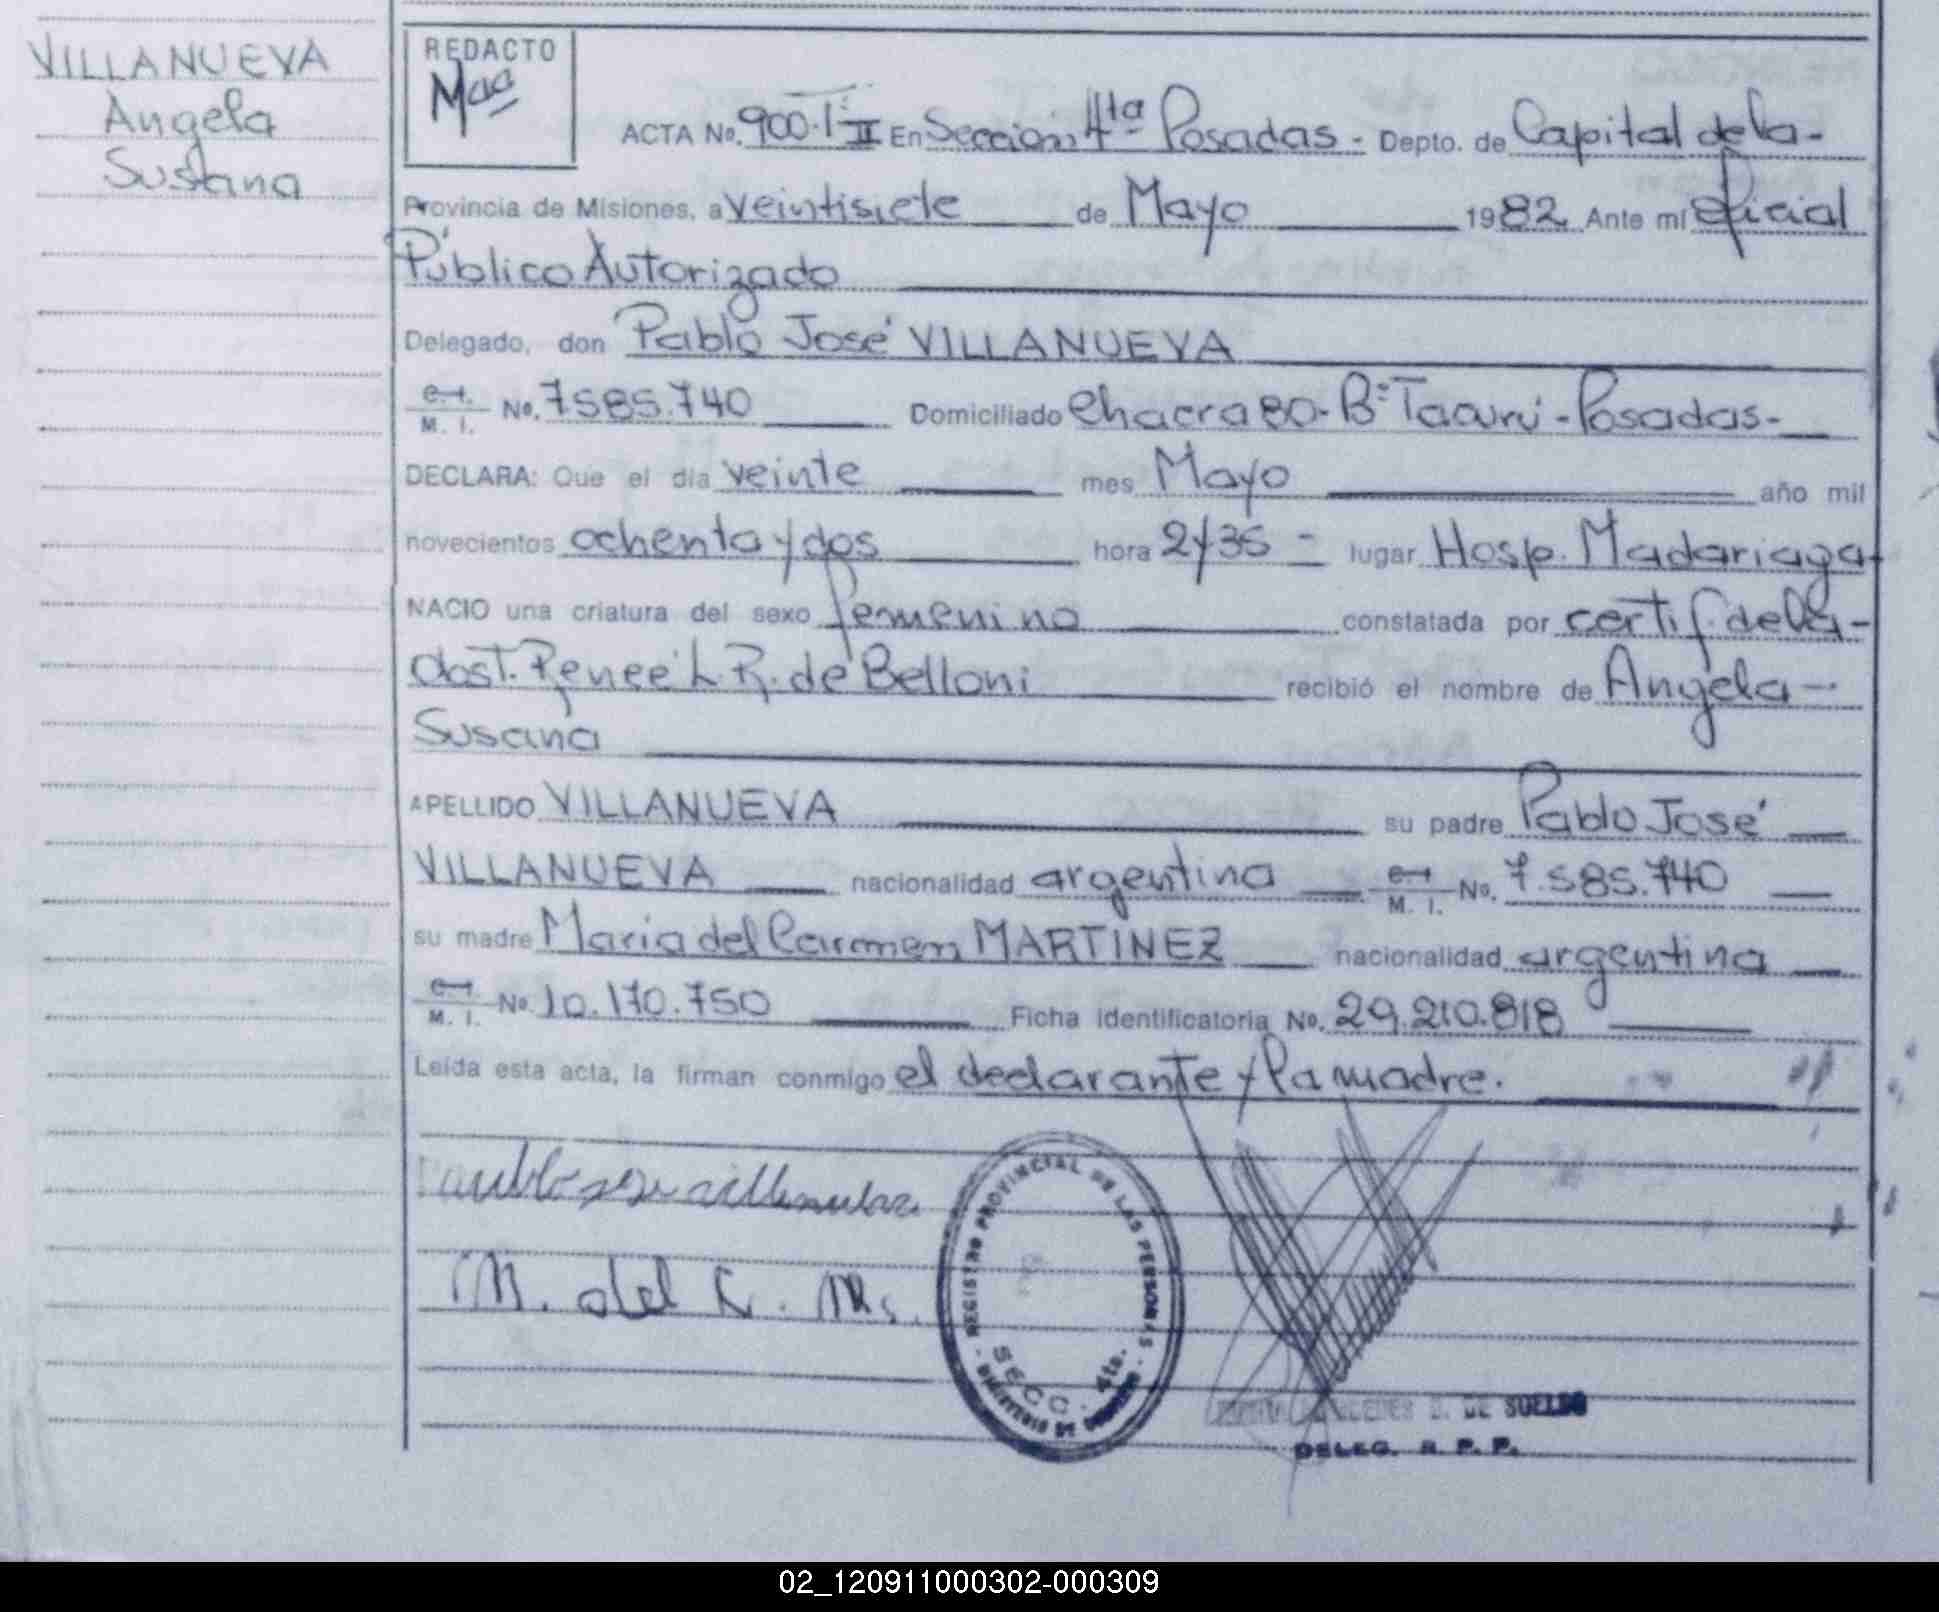 VILLANUEVA
Angela
Susana
REDACTO
ACTA No. 900-T II En Sección 4ta Posadas - Depto. de Capital de la -
Provincia de Misiones, a veintisiete de Mayo 1982 Ante mí Oficial
Público Autorizado
Delegado, don Pablo José VILLANUEVA
M. I. No. 7585.740 Domiciliado Chacra 80- Bº - Posadas -
DECLARA: Que el día veinte mes Mayo año mil
novecientos ochenta y dos hora 2y35 - lugar Hosp. Madariaga -
NACIO una criatura del sexo femenino constatada por certif. de la -
Obst. Renee L. R. de Belloni recibió el nombre de Angela -
Susana
APELLIDO VILLANUEVA su padre Pablo José
VILLANUEVA nacionalidad argentina M. I. No. 7.585.740
su madre Maria del Carmen MARTINEZ nacionalidad argentina
M. I. No 10.170.750 Ficha identificatoria No. 29.210.818
Leída esta acta, la firman conmigo el declarante y la madre.
M. del C. M.
REGISTRO PROVINCIAL DE LAS PERSONAS
SECC. 4ta.
MINISTERIO DE GOBIERNO
DE SUELDO
DELEG. R. P. P.
02_120911000302-000309